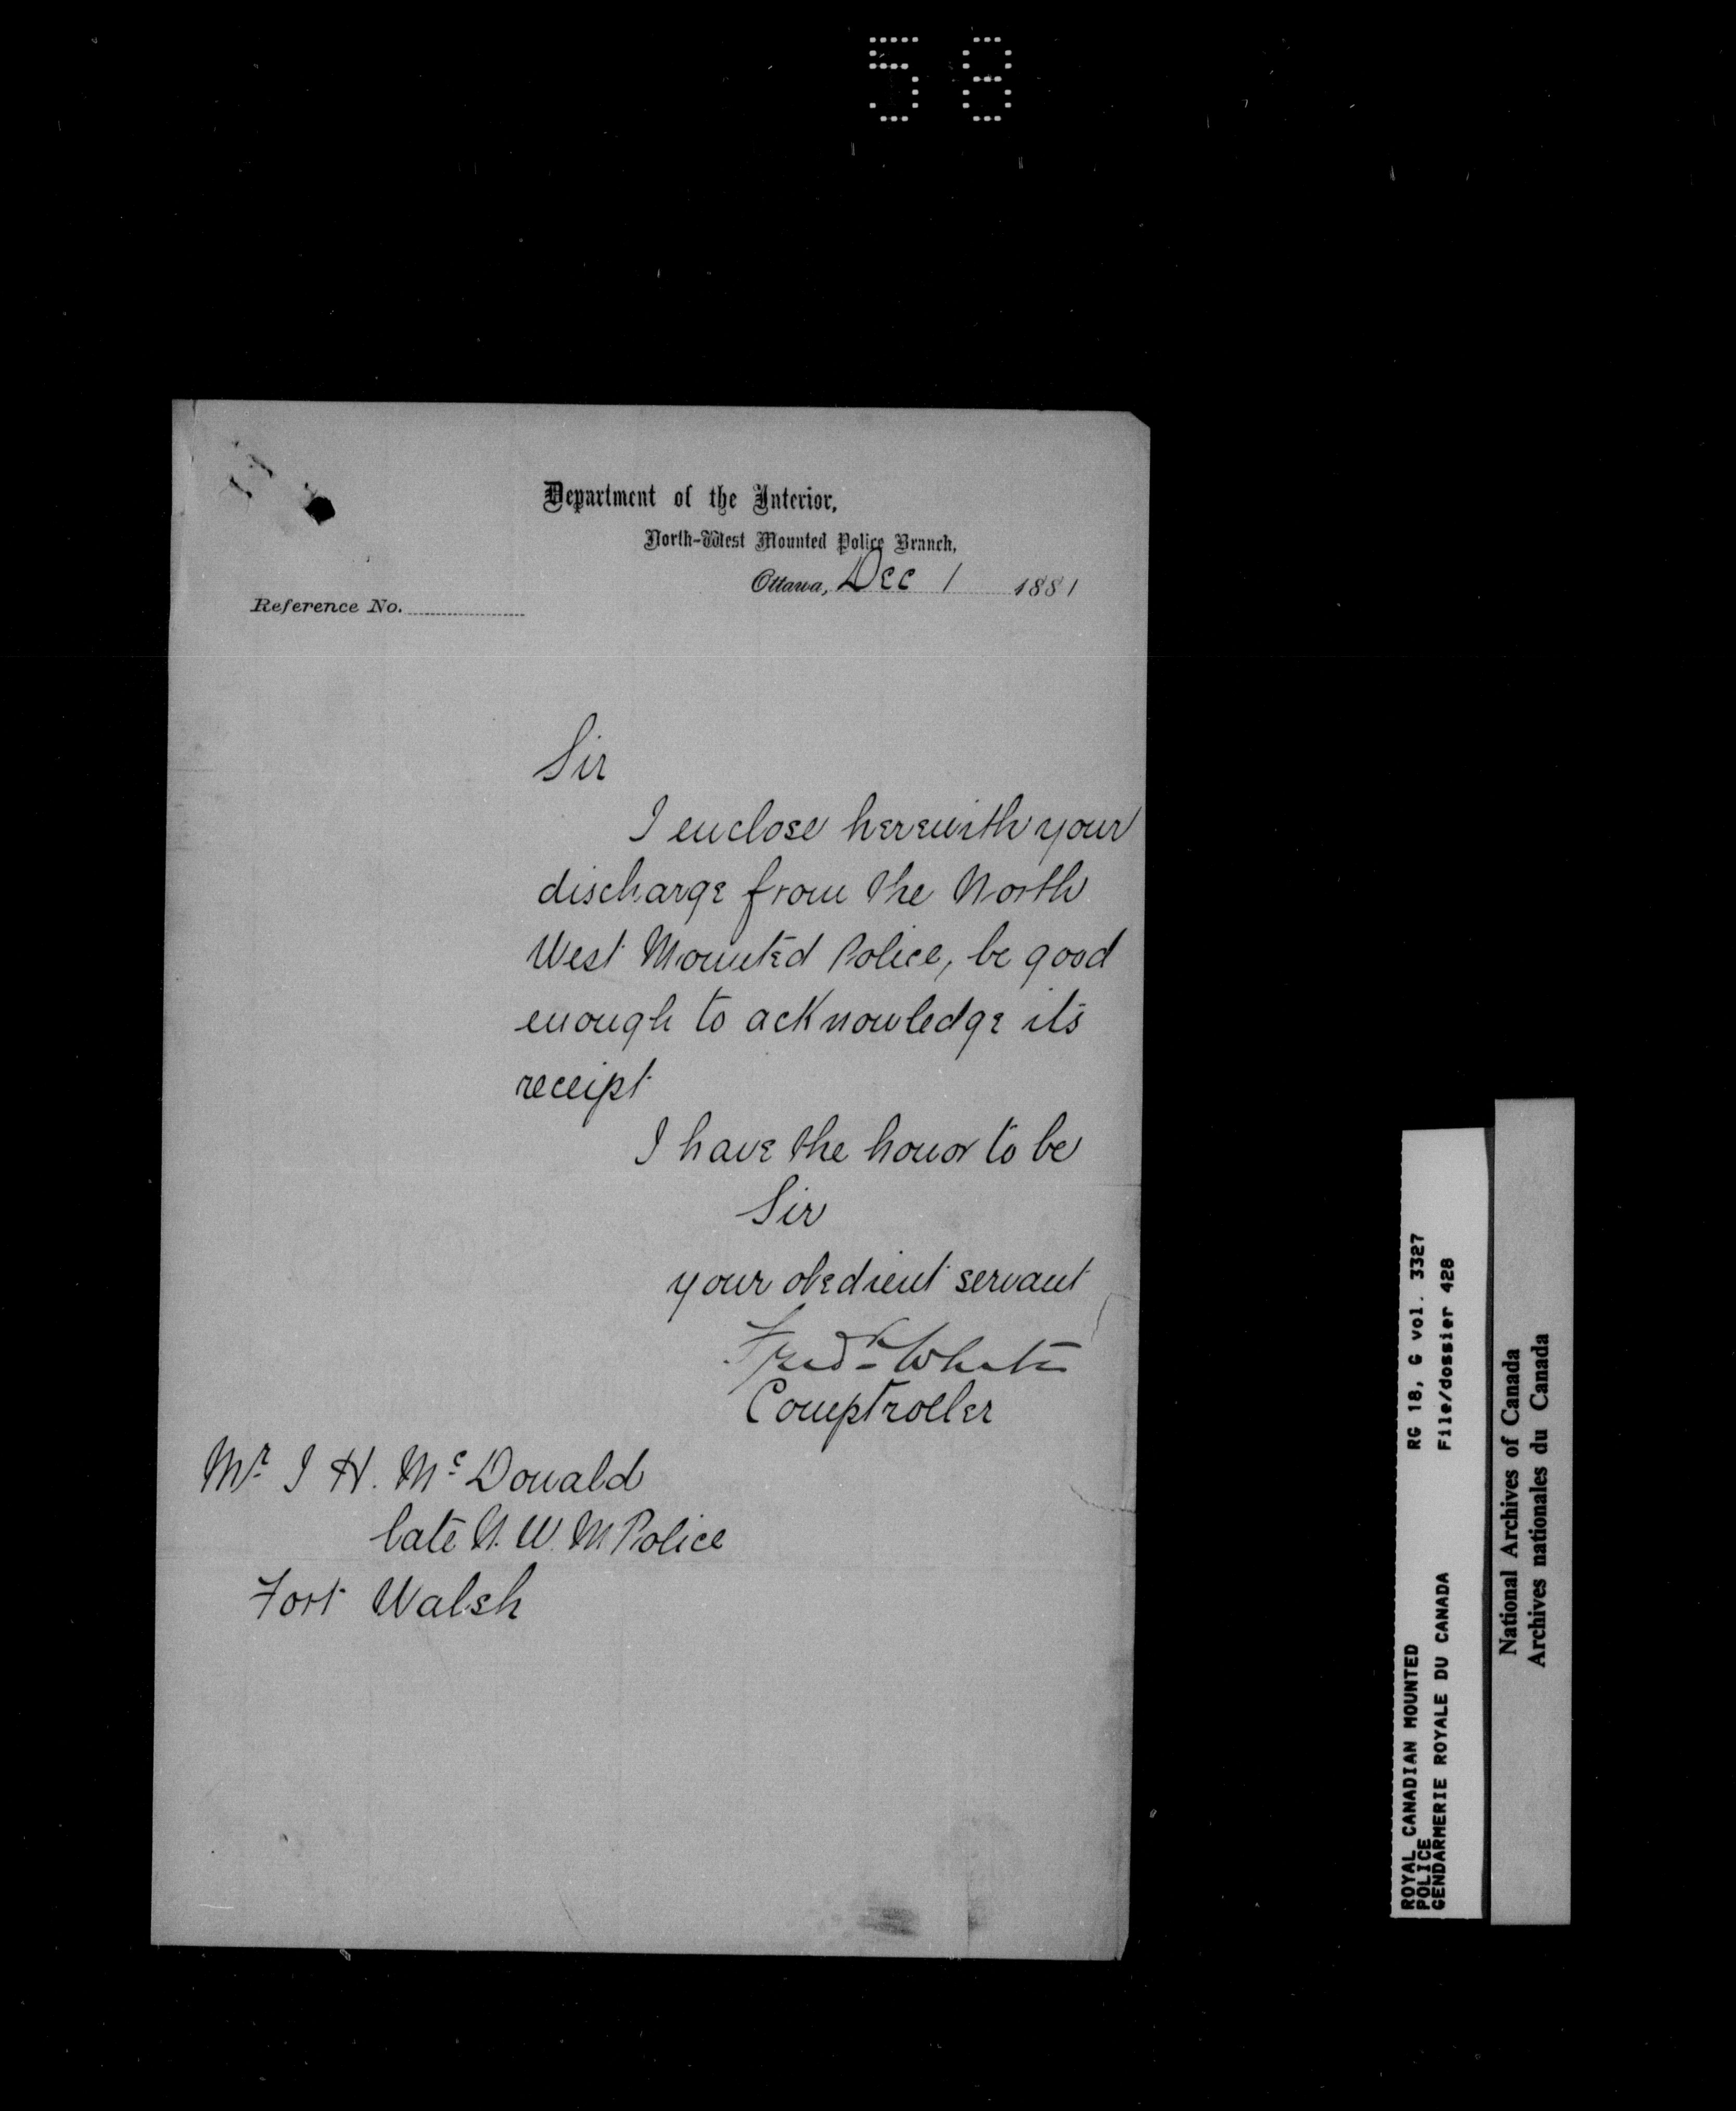 58
Department of the Interior,
North-West Mounted Police Branch,
Ottawa, Dec 1 1881
Reference No.
Sir
I enclose herewith your
discharge from the North
West Mounted Police, be good
enough to acknowledge its
receipt
I have the honor to be
Sir
your obedient servant
Fredk White
Comptroller
Mr. J H. McDonald
late N. W. M Police
Fort Walsh
ROYAL CANADIAN MOUNTED
POLICE
GENDARMERIE ROYALE DU CANADA
RG 18, G vol. 3327
File/dossier 428
National Archives of Canada
Archives nationales du Canada